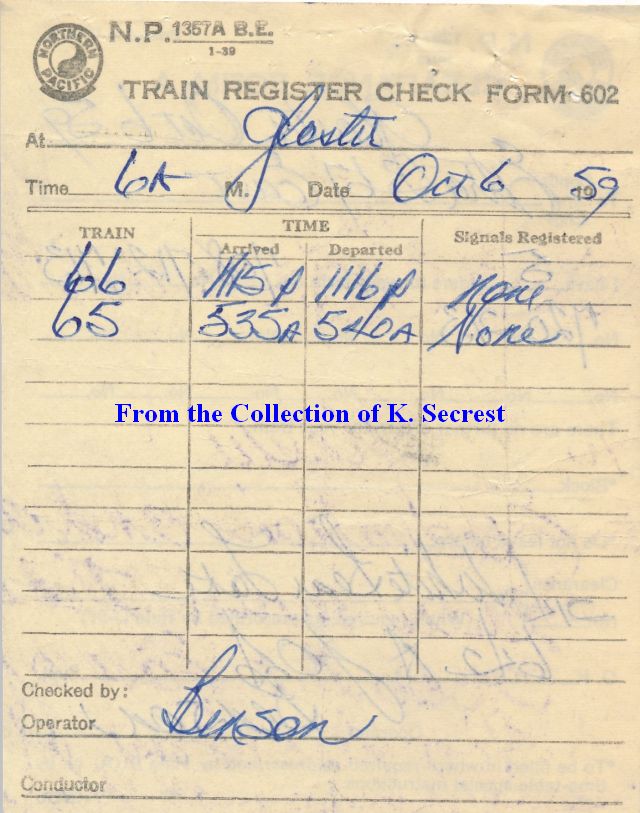 NORTHERN PACIFIC
N.P. 1357A B.E.
1-39
TRAIN REGISTER CHECK FORM 602
At Gloster
Time 6A M. Date Oct 6 1959
TRAIN TIME Signals Registered
Arrived Departed
66 1115P 1116P None
65 535A 540A None
From the Collection of K. Secrest
Checked by:
Operator Benson
Conductor